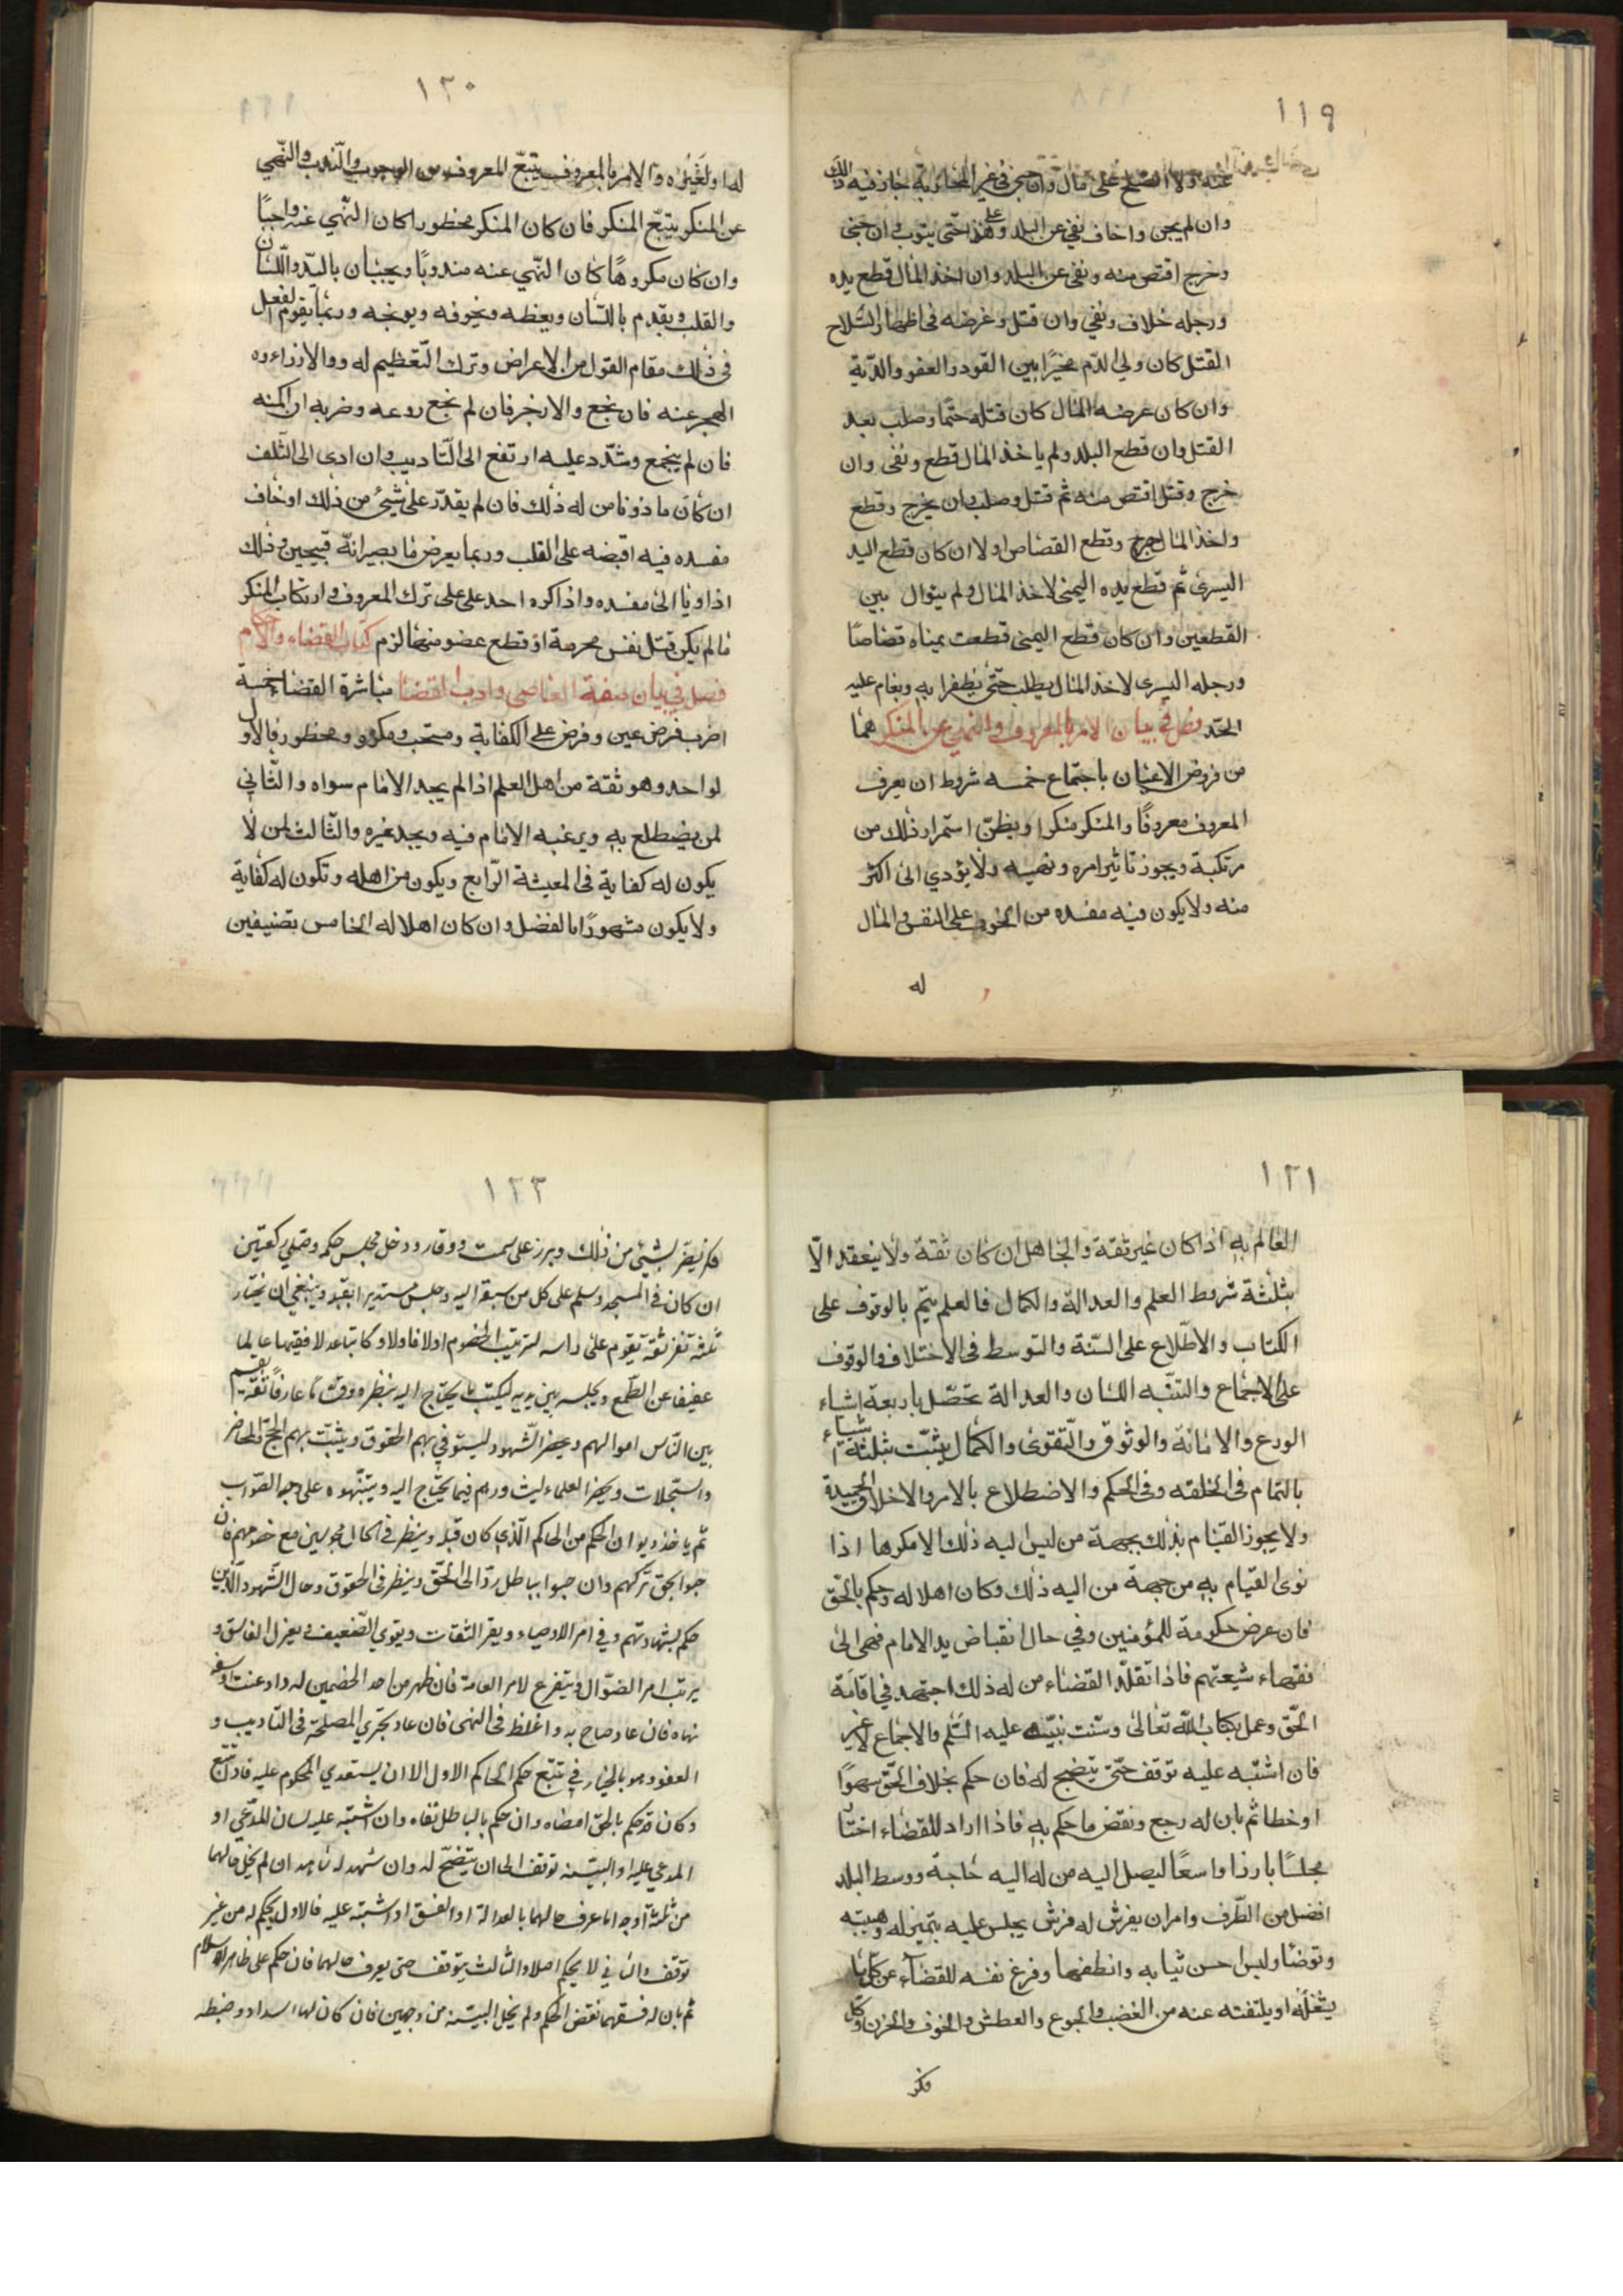 ١١٩
عنه ولا الصلح على مال وان جنى في غير المحاربة جاز فيه ذلك
وان لم يجن واخاف نفي عن البلد وعلى هذا حتى يتوب وان جنى
وخرج اقتص منه ونفى عن البلد وان اخذ المال قطع يده
ورجله خلاف ونفي وان قتل وغرضه في اظهار السّلاح
القتل كان ولي الدّم مخيّرًا بين القود والعفو والدّية
وان كان غرضه المال كان قتله حتمًا وصلب بعد
القتل وان قطع البلد ولم ياخذ المال قطع ونفى وان
خرج وقتل اقتص منه ثم قتل وصلب وان يخرج وقطع
واخذ المال جرح وقطع القصاص اولا ان كان قطع اليد
اليسرى ثم قطع يده اليمنى لاخذ المال ولم يتوال بين
القطعين وان كان قطع اليمنى قطعت يمناه قصاصًا
ورجله اليسرى لاخذ المال يطلب حتى يظفرا به ويقام عليه
الحدّ فصل في بيان الامر بالمعروف والنهي عن المنكر هما
من فروض الاعيان باجتماع خمسه شروط ان يعرف
المعروف معروفًا والمنكر منكرا ويظنّ استمرار ذلك من
مرتكبة ويجوز تاثير امره ونهيه ولا يؤدي الى اكثر
منه ولا يكون فيه مفسده من الخوف على النفس والمال
له
١٢٠
له او لغيره والامر بالمعروف يتبع المعروف من الوجوب والنّدب والنّهي
عن المنكر يتبع المنكر فان كان المنكر محظورا كان النّهي عنه واجبًا
وان كان مكروهًا كان النّهي عنه مندوبًا ويجبان باليد واللّسان
والقلب ويقدم باللسان ويعظه ويخوفه ويوبخه وربما يقوم الفعل
في ذلك مقام القول من الاعراض وترك التّعظيم له ووالازراء وه
الهجر عنه فان نجع والا زجر فان لم نجع روعه وضربه ان امكنه
فان لم ينجع وشدّد عليه ارتفع الى التّاديب وان ادى الى التّلف
ان كان ماذونا من له ذلك فان لم يقدر على شيئ من ذلك او خاف
مفسده فيه اقبضه على القلب وربما يعرض ما بصيرانّه قبيحين وذلك
اذا اويا الى مفسده واذا كره احد على على ترك المعروف وارتكاب المنكر
ما لم يكن قتل نفس محرمة او قطع عضو منها لزم كتاب القضاء والاحكام
فصل في بيان صفة القاضى وادب القضا مباشرة القضاء خمسة
اضرب فرض عين وفرض على الكفاية ومستحب ومكروه ومحظور فالاول
لواحد وهو ثقة من اهل العلم اذا لم يجد الامام سواه والثّاني
لمن يضطلع به ويرغبه الامام فيه ويجد غيره والثّالث لمن لا
يكون له كفاية في المعيشة الرّابع ويكون من اهله وتكون له كفاية
ولا يكون مشهورًا بالفضل وان كان اهلا له الخامس بتصنيفين
١٢١
العالم به اذا كان غير ثقة والجاهل ان كان ثقة ولا ينعقد الّا
بثلثة شروط العلم والعدالة والكمال فالعلم يتم بالوقوف على
الكتاب والاطّلاع على السّنة والتوسط في الاختلاف والوقوف
على الاجماع والتنبّه اللسان والعدالة تحصّل باربعة اشياء
الورع والامانة والوثوق والتّقوى والكمال يثبّت بثلثة اشياء
بالتمام في الخلقه وفي الحكم والاضطلاع بالامر والاخلاق الحميدة
ولا يجوز القيام بذلك بجهة من ليس ليه ذلك الا مكرها اذا
نوى القيام به من جهة من اليه ذلك وكان اهلا له وحكم بالحّق
فان عرض حكومة للمؤمنين وفي حال انقباض يد الامام فهى الى
فقهاء شيعتهم فاذا تقلّد القضاء من له ذلك اجتهد في اقامة
الحّق وعمل بكتاب اللّه تعالى وسنت نبيّه عليه السّلم والاجماع لاغير
فان اشتبه عليه توقف حتّى يتضح له فان حكم بخلاف الحّق سهوًا
او خطا ثم بان له رجع ونقض ما حكم به فاذا اراد للقضاء اختار
مجلسًا بارزا واسعًا ليصل اليه من له اليه حاجة ووسط البلد
افضل من الطّرف وامر ان يفرش له فرش يجلس عليه يتميز له وهيبته
وتوضا ولبس احسن ثيابه وانظفها وفرغ نفسه للقضاء عن كل ما
يشغله او يلتفته عنه من الغضب والجوع والعطش والخوف والحزن وكل
فكر
١٢٢
فكر يضرّ لشيئ من ذلك وبرز على سمت ووقار ودخل مجلس حكمه وصلي ركعتين
ان كان في المسجد وسلم على كل من سبق اليه وجلس مستدبرا لقبلة وينبغي ان يختار
ثلثه نفر ثقة يقوم على راسه لترتيب الخصوم اولا فاولا وكاتبا عدلا فقيها عالما
عفيفا عن الطّمع ويجلسه بين يديه ليكتب ما يحتاج اليه بنظره وقتا ما عارفا ثقة يقسم
بين النّاس اموالهم ويحضر الشّهود ليستوفي بهم الحقوق ويثبت بهم الحجج والمحاضر
والسّجلات ويحضر العلماء ليشاورهم فيما يحتاج اليه وينبّهوه على وجه الصّواب
ثم ياخذ ديوان الحكم من الحاكم الّذي كان قبله وينظر في الحال محبوسين مع خصومهم فان
حبوا بحق تركهم وان حبوا بباطل ردّ الى الحقّ وينظر في الحقوق وحال الشّهود الّذين
حكم بشهادتهم وفي امر الاوصياء ويقر الثقات ويقوي الضّعيف ويعزل الفاسق و
يرتب امر الضوّال ويتفرغ لامر العامة فان ظهر من احد الخصمين لدداد عنت او سفه
نهاه فان عاد صاح به واغلظ في النهى فان عاد يجري المصلحة في التاديب و
العفو وهو بالخيار في تتبّع حكم الحاكم الاول الا ان يستعدي المحكوم عليه فاذا تتبع
وكان قد حكم بالحق امضاه وان حكم بالباطل نفاه وان اشتبه عليه لسان المدّعي او
المدعي عليه او البيّنه توقف الى ان يتضّح له وان شهد له شاهد ان لم يخل حالهما
من ثلثة اوجه اما عرف حالهما بالعدالة او الفسق او اشتبه عليه فالاول يحكم له من غير
توقف والثاني لا يحكم اصلا والثالث يتوقف حتى يعرف حالهما فان حكم على ظاهر الاسلام
ثم بان له فسقهما نقض الحكم ولم يخل البيّنه من وجهين فان كان لها اسداد وضبطه